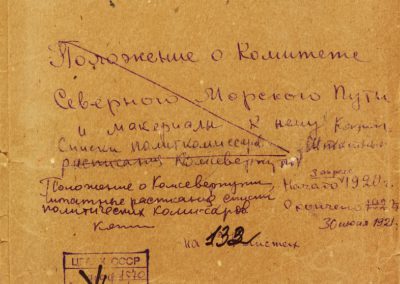 Положение о Комитете
Северного Морского Пути
и материалы к нему
Списки политкомиссаров Штатные
расписания Комсеверпути
Положение о Комсеверпути,
штатные расписания списки
политических комиссаров
Начато 1920 г.
Окончено
30 июня 1921
на 132 листах
ЦГА СССР